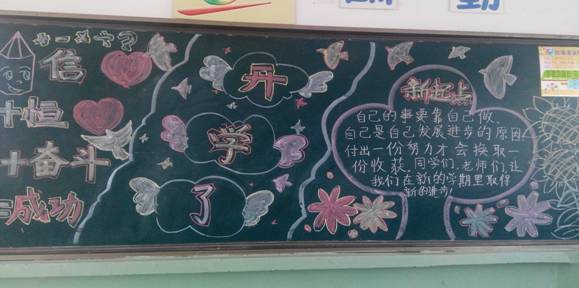 信
+恒
+奋斗
=成功
开
学
了
新起点
自己的事要靠自己做.
自己是自己发展进步的原因.
付出一份努力才会换取一
份收获.同学们,老师们,让
我们在新的学期里取得
新的进步!